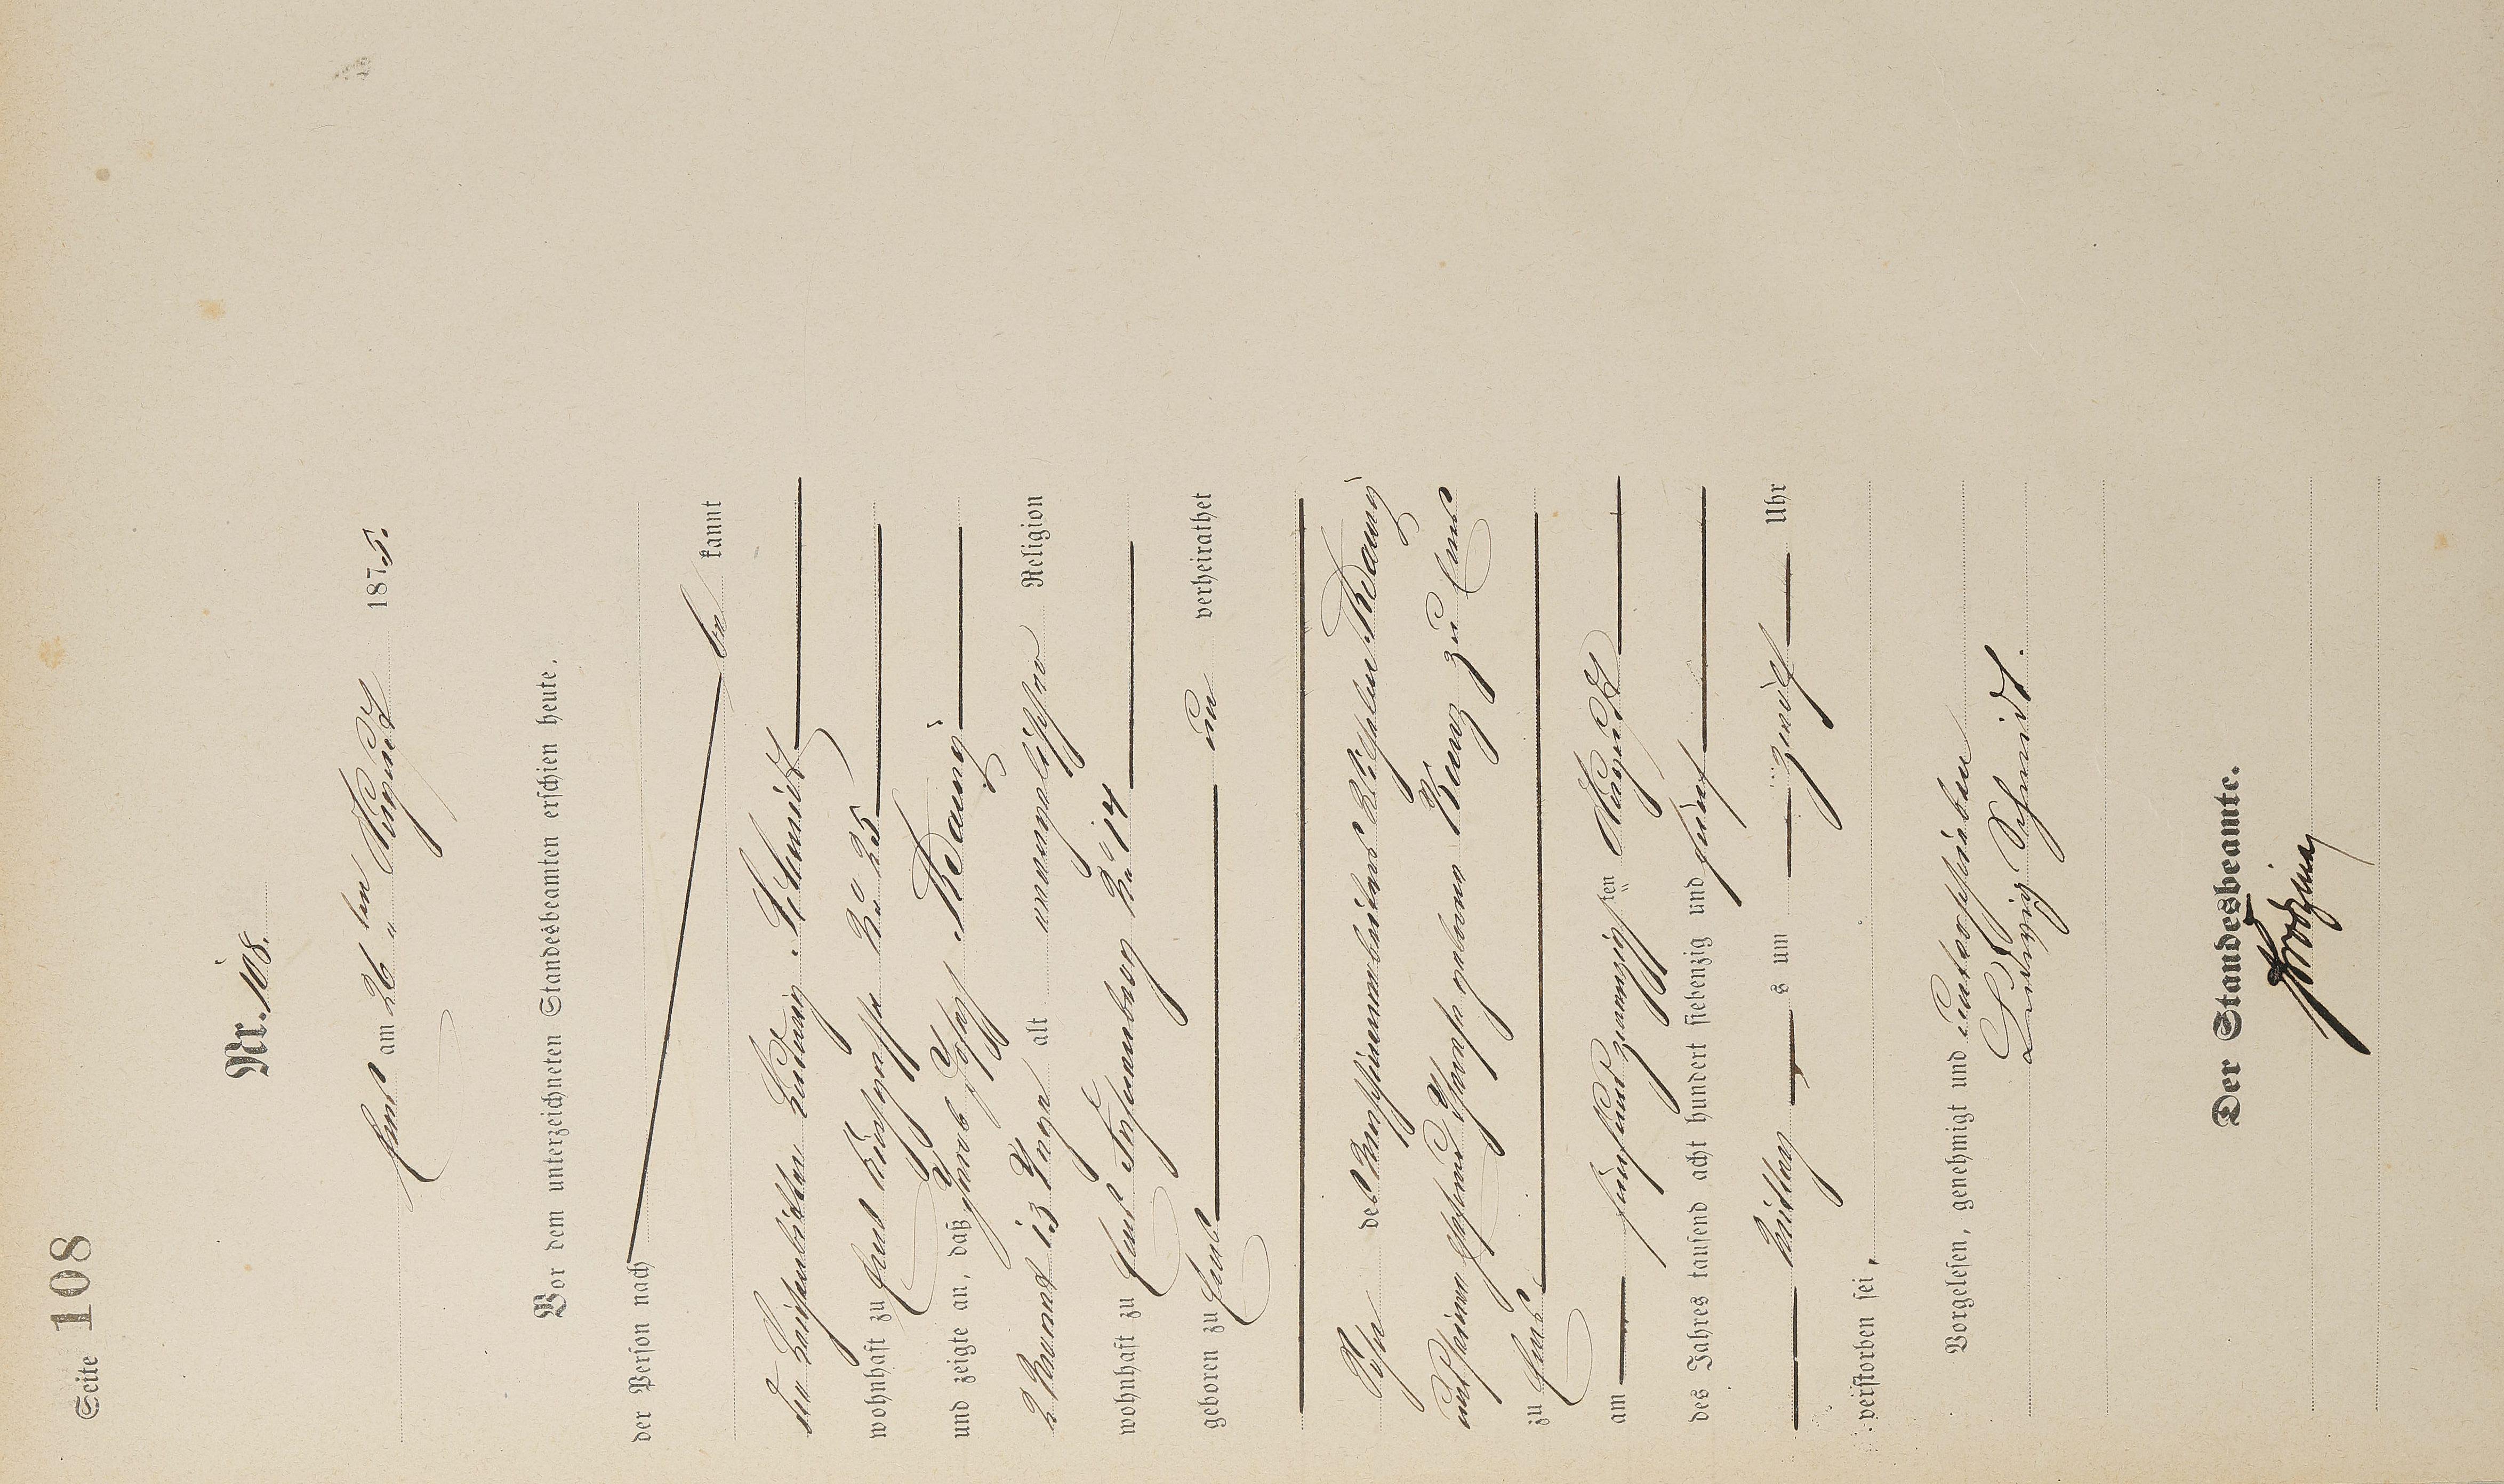 Seite 108
Nr. 108.
Ems am 26ten August 1875.
Vor dem unterzeichneten Standesbeamten erschien heute,
der Person nach
be kannt
den Ludwig Schmidt
wohnhaft zu Ems No 25
und zeigte an, daß Jacob Joseph
2 Monat 13 Tage alt evangelischer Religion
wohnhaft zu Ems No 14
geboren zu Ems un verheirathet
Sohn des Maschinenarbeiters
und seiner Ehefrau geborene zu Ems
zu Ems
am fünfundzwanzigsten August
des Jahres tausend acht hundert siebenzig und fünf
Mittag s um zwölf Uhr
verstorben sei.
Vorgelesen, genehmigt und unterschrieben
Ludwig Schmidt.
Der Standesbeamte.